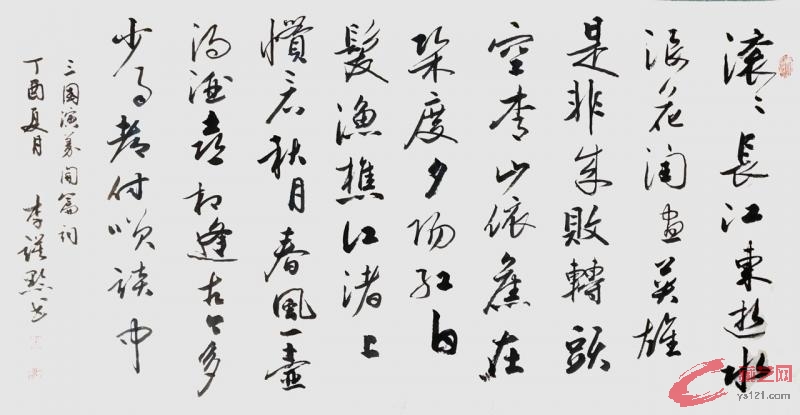 滚〻長江東逝水
浪花淘盡英雄
是非成敗轉頭
空青山依舊在
幾度夕阳红白
髮漁樵江渚上
慣看秋月春風一壶
濁酒喜相逢古今多
少事都付笑談中
三國演義開篇词
丁酉夏月 李
艺网
ys121.com